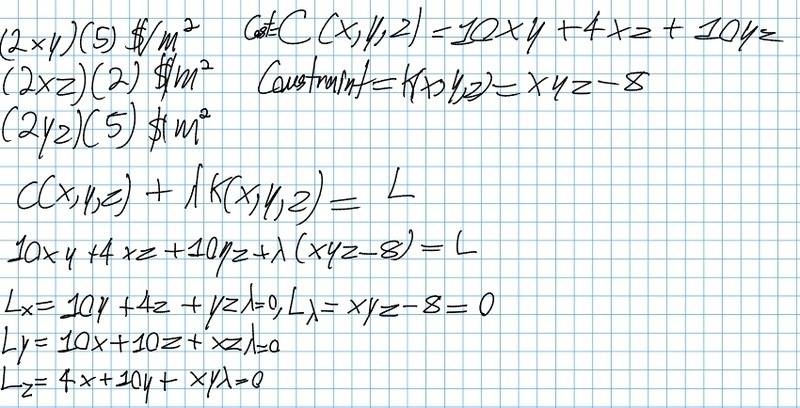 (2xy)(5) $/m² Cost=C(x,y,z)=10xy+4xz+10yz
(2xz)(2) $/m² Constraint=K(x,y,z)=xyz-8
(2yz)(5) $/m²
C(x,y,z)+λK(x,y,z)=L
10xy+4xz+10yz+λ(xyz-8)=L
Lx=10y+4z+yzλ=0, Lλ=xyz-8=0
Ly=10x+10z+xzλ=0
Lz=4x+10y+xyλ=0